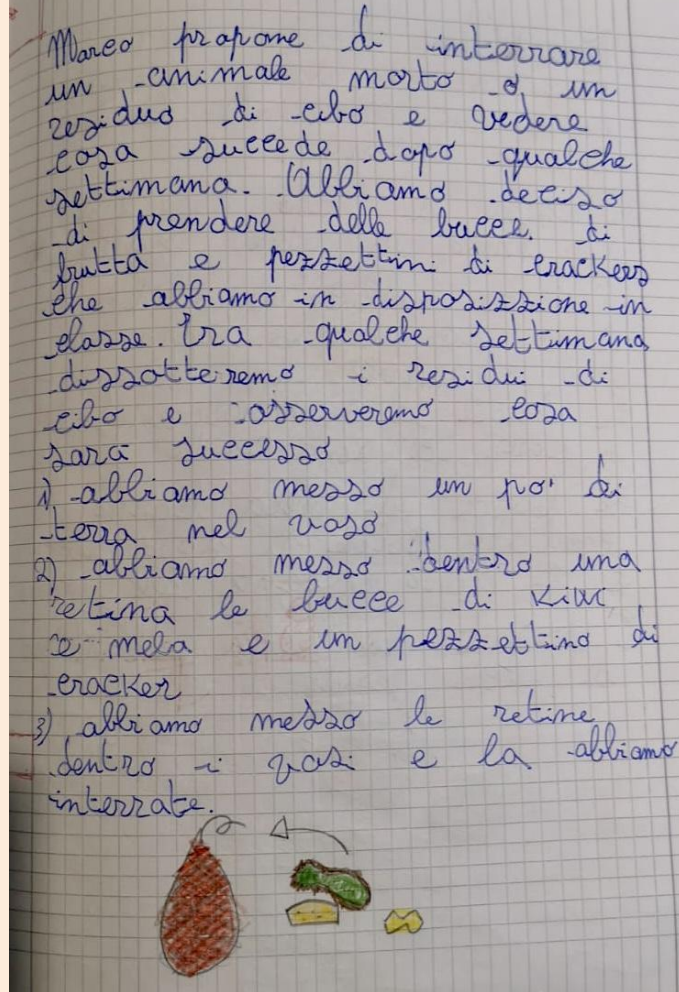 Marco propone di interrare
un animale morto o un
residuo di cibo e vedere
cosa succede dopo qualche
settimana. Abbiamo deciso
di prendere delle bucce di
frutta e pezzettini di crackers
che abbiamo in disposizzione in
classe. Tra qualche settimana
dissotteremo i residui di
cibo e osserveremo cosa
sarà successo
1) abbiamo messo un po' di
terra nel vaso
2) abbiamo messo dentro una
retina le bucce di Kiwi
e mela e un pezzettino di
cracker
3) abbiamo messo le retine
dentro i vasi e la abbiamo
interrate.